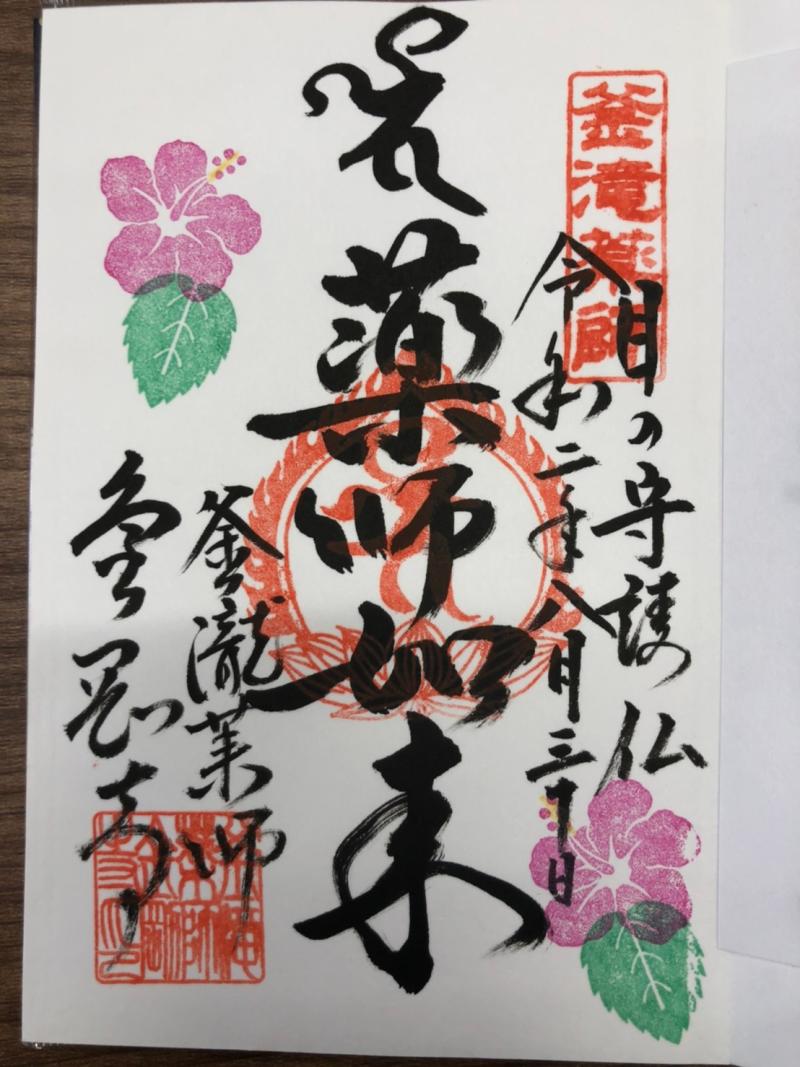 釜滝薬師
目の守護仏
令和二年八月三十日
薬師如来
釜瀧薬師
金剛寺